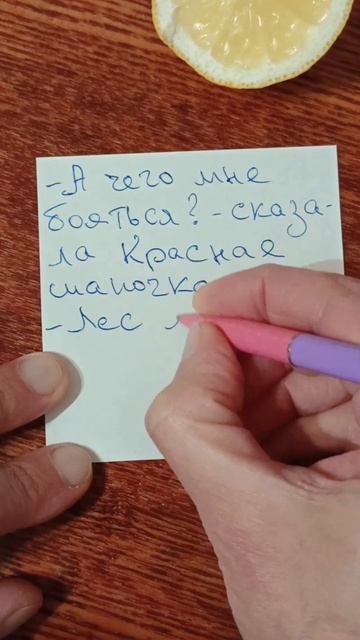 -А чего мне
бояться? - сказа-
ла Красная
шапочка
-Лес